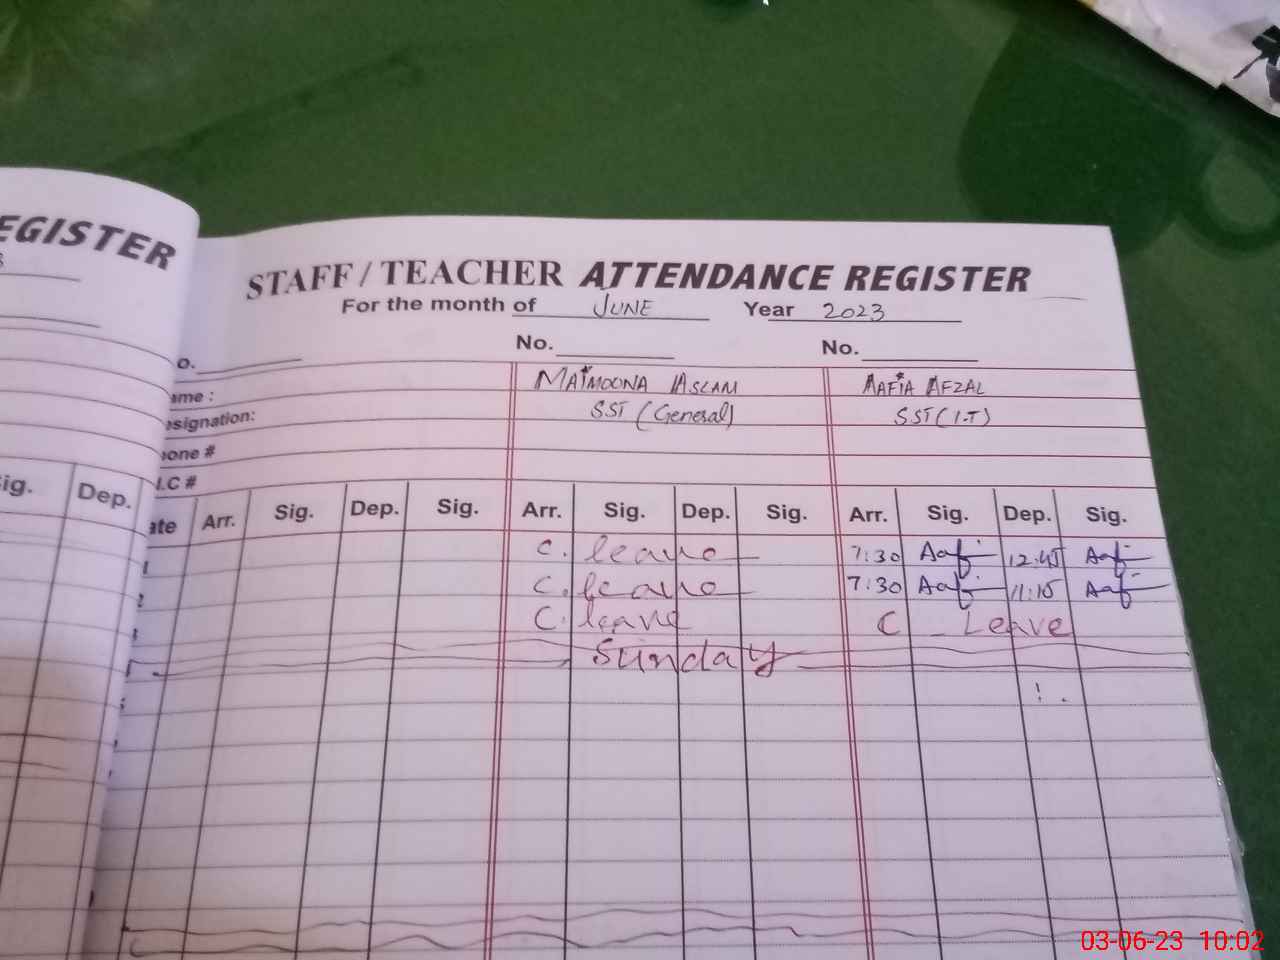 EGISTER
STAFF / TEACHER ATTENDANCE REGISTER
For the month of JUNE Year 2023
o. No. No.
ame : MAIMOONA ASLAM AAFIA AFZAL
esignation: SST (General) SST (I.T)
one #
I.C #
ig. Dep.
ate Arr. Sig. Dep. Sig. Arr. Sig. Dep. Sig. Arr. Sig. Dep. Sig.
1 C. leave 7:30 Aaf 12:45 Aaf
2 C. leave 7:30 Aaf 11:15 Aaf
3 C. leave C _ Leave
Sunday
03-06-23 10:02